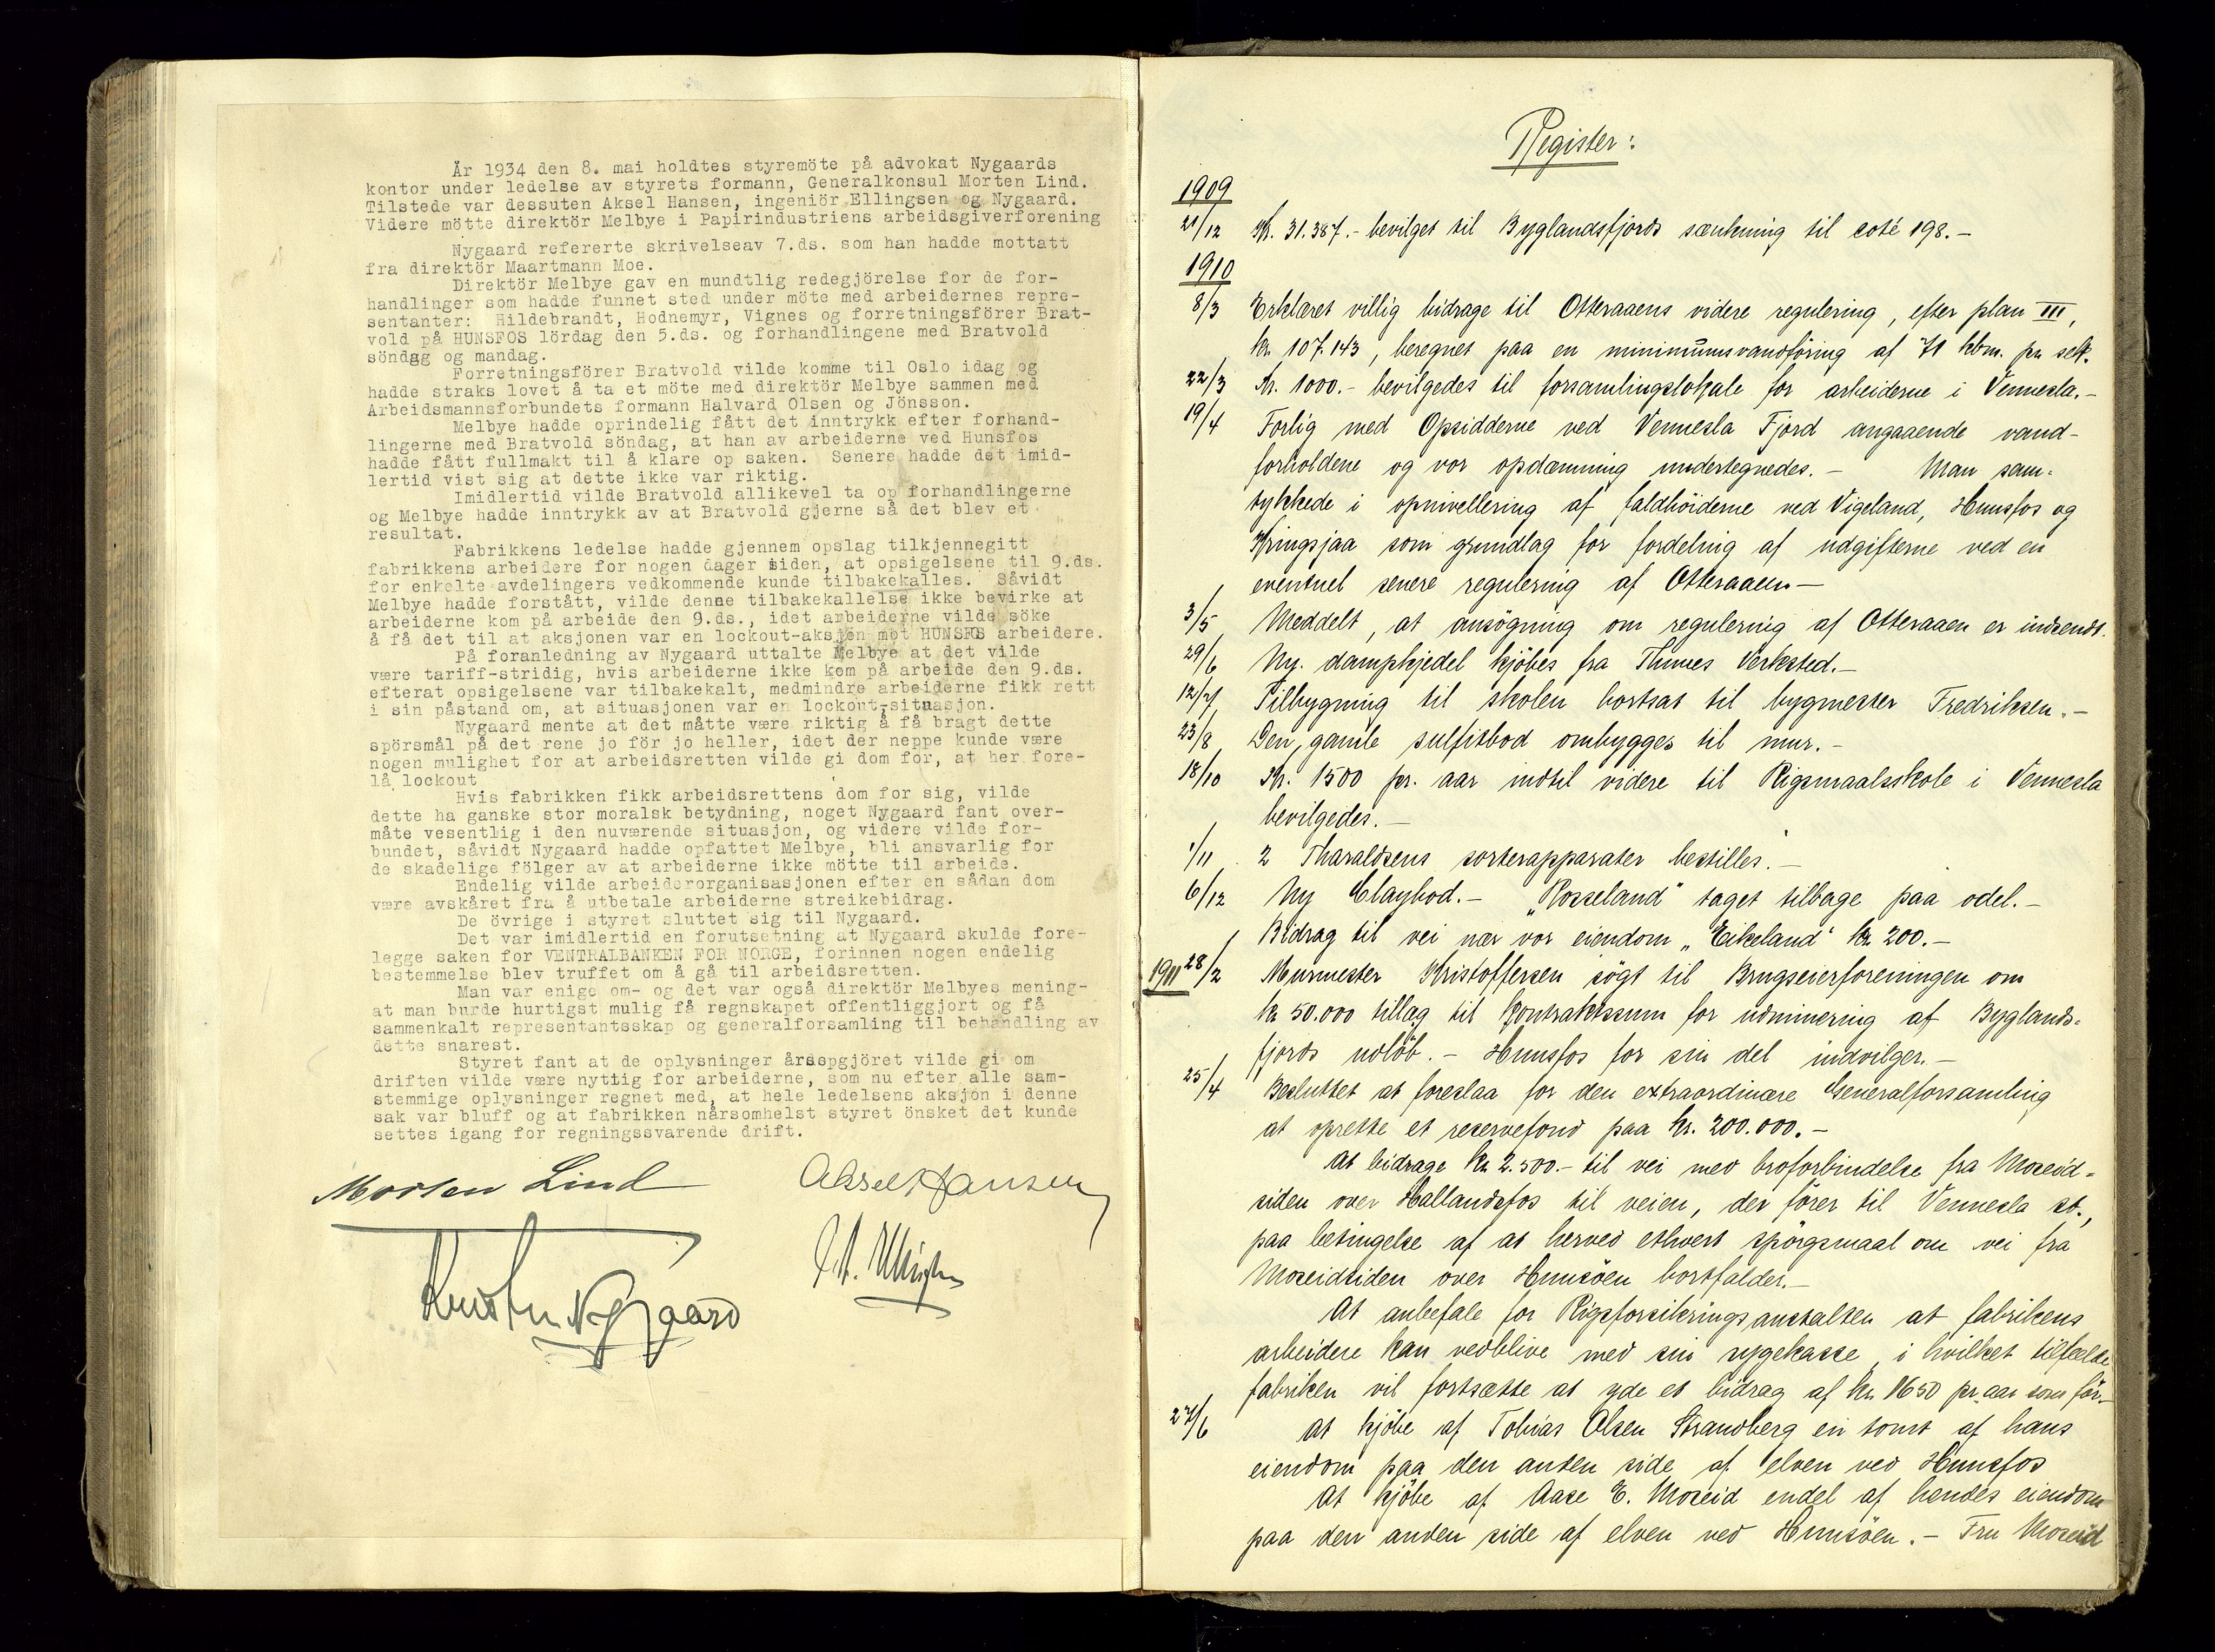 År 1934 den 8. mai holdtes styremöte på advokat Nygaards
kontor under ledelse av styrets formann, Generalkonsul Morten Lind.
Tilstede var dessuten Aksel Hansen, ingeniör Ellingsen og Nygaard.
Videre mötte direktör Melbye i Papirindustriens arbeidsgiverforening
Nygaard refererte skrivelseav 7.ds. som han hadde mottatt
fra direktör Maartmann Moe.
Direktör Melbye gav en mundtlig redegjörelse for de for-
handlinger som hadde funnet sted under möte med arbeidernes repre-
sentanter: Hildebrandt, Hodnemyr, Vignes og forretningsförer Brat-
vold på HUNSFOS lördag den 5.ds. og forhandlingene med Bratvold
söndag og mandag.
Forretningsförer Bratvold vilde komme til Oslo idag og
hadde straks lovet å ta et möte med direktör Melbye sammen med
Arbeidsmannsforbundets formann Halvard Olsen og Jönsson.
Melbye hadde oprindelig fått det inntrykk efter forhand-
lingerne med Bratvold söndag, at han av arbeiderne ved Hunsfos
hadde fått fullmakt til å klare op saken. Senere hadde det imid-
lertid vist sig at dette ikke var riktig.
Imidlertid vilde Bratvold allikevel ta op forhandlingerne
og Melbye hadde inntrykk av at Bratvold gjerne så det blev et
resultat.
Fabrikkens ledelse hadde gjennem opslag tilkjennegitt
fabrikkens arbeidere for nogen dager siden, at opsigelsene til 9.ds.
for enkelte avdelingers vedkommende kunde tilbakekalles. Såvidt
Melbye hadde forstått, vilde denne tilbakekallelse ikke bevirke at
arbeiderne kom på arbeide den 9.ds., idet arbeiderne vilde söke
å få det til at aksjonen var en lockout-aksjon mot HUNSFOS arbeidere.
På foranledning av Nygaard uttalte Melbye at det vilde
være tariff-stridig, hvis arbeiderne ikke kom på arbeide den 9.ds.
efterat opsigelsene var tilbakekalt, medmindre arbeiderne fikk rett
i sin påstand om, at situasjonen var en lockout-situasjon.
Nygaard mente at det måtte være riktig å få bragt dette
spörsmål på det rene jo för jo heller, idet der neppe kunde være
nogen mulighet for at arbeidsretten vilde gi dom for, at her fore-
lå lockout
Hvis fabrikken fikk arbeidsrettens dom for sig, vilde
dette ha ganske stor moralsk betydning, noget Nygaard fant over-
måte vesentlig i den nuværende situasjon, og videre vilde for-
bundet, såvidt Nygaard hadde opfattet Melbye, bli ansvarlig for
de skadelige fölger av at arbeiderne ikke mötte til arbeide.
Endelig vilde arbeiderorganisasjonen efter en sådan dom
være avskåret fra å utbetale arbeiderne streikebidrag.
De övrige i styret sluttet sig til Nygaard.
Det var imidlertid en forutsetning at Nygaard skulde fore-
legge saken for VENTRALBANKEN FOR NORGE, forinnen nogen endelig
bestemmelse blev truffet om å gå til arbeidsretten.
Man var enige om- og det var også direktör Melbyes mening-
at man burde hurtigst mulig få regnskapet offentliggjort og få
sammenkalt representantsskap og generalforsamling til behandling av
dette snarest.
Styret fant at de oplysninger årsopgjöret vilde gi om
driften vilde være nyttig for arbeiderne, som nu efter alle sam-
stemmige oplysninger regnet med, at hele ledelsens aksjon i denne
sak var bluff og at fabrikken nårsomhelst styret önsket det kunde
settes igang for regningssvarende drift.
Morten Lind
Aksel Hansen
Nygaard
Register:
1909
21/12 Kr. 31.387.- bevilget til Byglandsfjords sænkning til coté 198.-
1910
8/3 Erklæret villig bidrage til Otteraaens videre regulering, efter plan III,
kr. 107.143, beregnet paa en minimumsvandföring af 71 kbm. pr. sek.
22/3 Kr. 1000.- bevilgedes til forsamlingslokale for arbeiderne i Vennesla.-
19/4 Forlig med Opsidderne ved Vennesla Fjord angaaende vand-
forholdene og vor opdæmning undertegnedes.- Man sam-
tykkede i opnivellering af faldhöiderne ved Vigeland, Hunsfos og
Kringsjaa som grundlag for fordeling af udgifterne ved en
eventuel senere regulering af Otteraaen.-
3/5 Meddelt, at ansögning om regulering af Otteraaen er indsendt.
29/6 Ny dampkjedel kjöbes fra Thunes Verksted.-
12/7 Tilbygning til skolen bortsat til bygmester Fredriksen.-
23/8 Den gamle sulfitbod ombygges til mur.-
18/10 Kr. 1500 pr. aar indtil videre til Rigsmaalsskole i Vennesla
bevilgedes.-
1/11 2 Tharaldsens sorterapparater bestilles.-
6/12 Ny Claybod.- „Rosseland" taget tilbage paa odel.-
Bidrag til vei nær vor eiendom „Eikeland" kr. 200.-
1911 28/2 Murmester Kristoffersen sögt til Brugseierforeningen om
kr. 50.000 tillæg til kontraktssum for udminering af Byglands-
fjords udlöb.- Hunsfos for sin del indvilger.-
25/4 Besluttet at foreslaa for den extraordinære Generalforsamling
at oprette et reservefond paa kr. 200.000.-
At bidrage kr. 2.500.- til vei med broforbindelse fra Moseid-
siden over Hallandsfos til veien, der förer til Vennesla st.,
paa betingelse af at herved ethvert spörgsmaal om vei fra
Moseidsiden over Hunsöen bortfalder.-
At anbefale for Rigsforsikringsanstalten at fabrikens
arbeidere kan vedblive med sin sygekasse, i hvilket tilfælde
fabriken vil fortsætte at yde et bidrag af kr. 1650 pr. aar som för.-
27/6 At kjöbe af Tobias Olsen Strandberg en tomt af hans
eiendom paa den anden side af elven ved Hunsfos
At kjöbe af Aase E. Moseid endel af hendes eiendom
paa den anden side af elven ved Hunsöen.- Fru Moseid